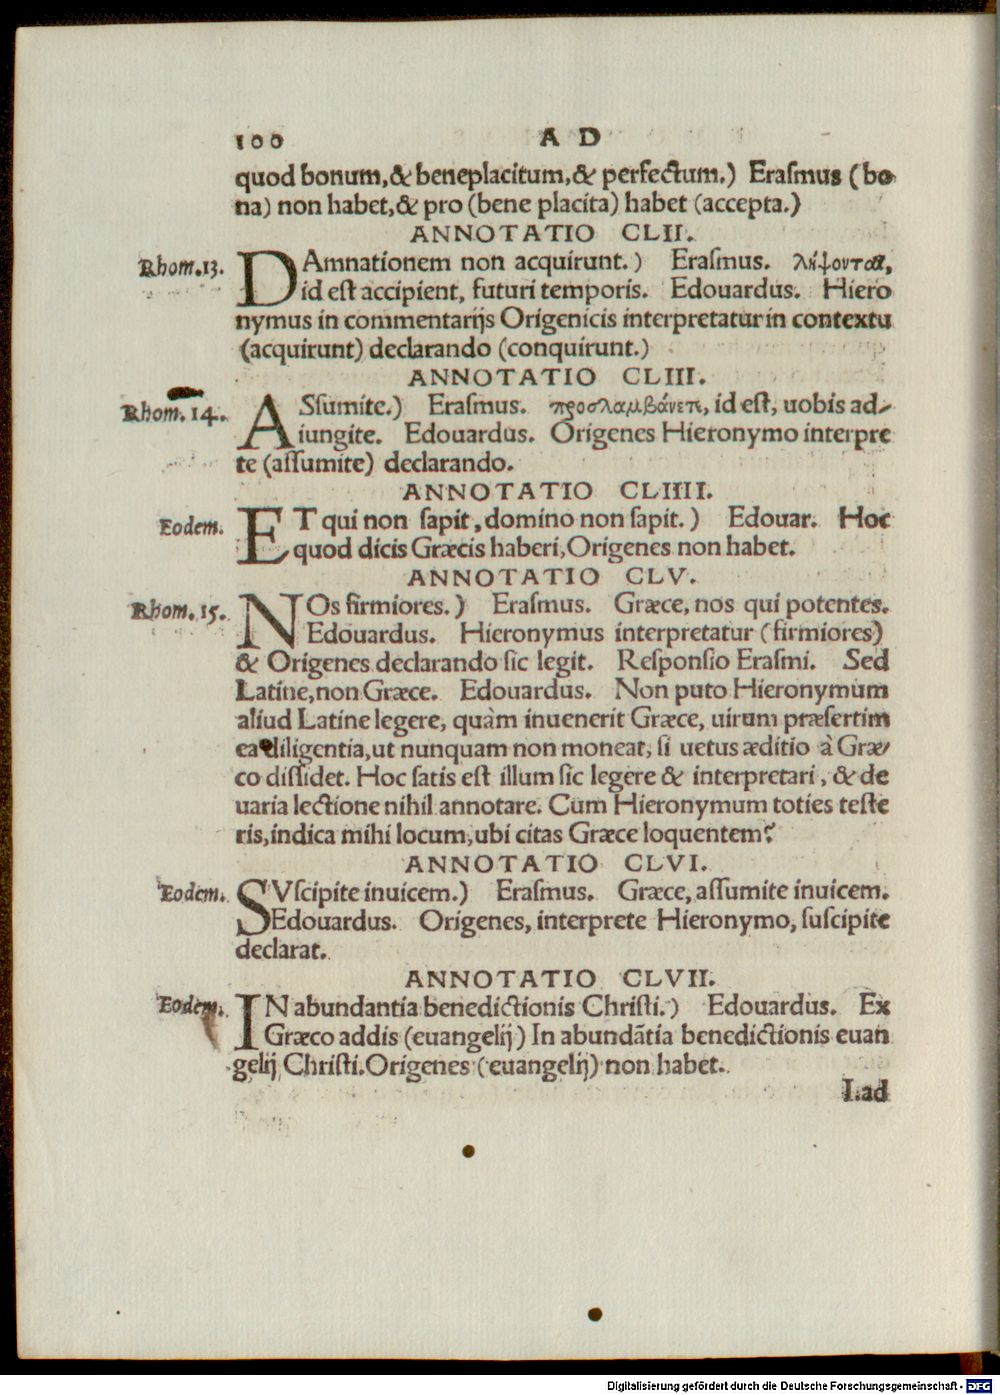 100 A D
quod bonum,& beneplacitum,& perfectum.) Erasmus (bo
na) non habet,& pro (bene placita) habet (accepta.)
ANNOTATIO CLII.
Rhom.13. DAmnationem non acquirunt.) Erasmus. λήψονται,
id est accipient, futuri temporis. Edouardus. Hiero
nymus in commentarijs Origenicis interpretatur in contextu
(acquirunt) declarando (conquirunt.)
ANNOTATIO CLIII.
Rhom.14. ASsumite.) Erasmus. προσλαμβάνετε, id est, uobis ad-
iungite. Edouardus. Origenes Hieronymo interpre
te (assumite) declarando.
ANNOTATIO CLIIII.
Eodem. ET qui non sapit, domino non sapit.) Edouar. Hoc
quod dicis Græcis haberi, Origenes non habet.
ANNOTATIO CLV.
Rhom.15. NOs firmiores.) Erasmus. Græce, nos qui potentes.
Edouardus. Hieronymus interpretatur (firmiores)
& Origenes declarando sic legit. Responsio Erasmi. Sed
Latine, non Græce. Edouardus. Non puto Hieronymum
aliud Latine legere, quàm inuenerit Græce, uirum præsertim
ea diligentia, ut nunquam non moneat, si uetus æditio à Græ-
co dissidet. Hoc satis est illum sic legere & interpretari, & de
uaria lectione nihil annotare. Cum Hieronymum toties teste
ris, indica mihi locum, ubi citas Græce loquentem?
ANNOTATIO CLVI.
Eodem. SVscipite inuicem.) Erasmus. Græce, assumite inuicem.
Edouardus. Origenes, interprete Hieronymo, suscipite
declarat.
ANNOTATIO CLVII.
Eodem. IN abundantia benedictionis Christi.) Edouardus. Ex
Græco addis (euangelij) In abundãtia benedictionis euan
gelij Christi. Origenes (euangelij) non habet.
I.ad
Digitalisierung gefördert durch die Deutsche Forschungsgemeinschaft - DFG